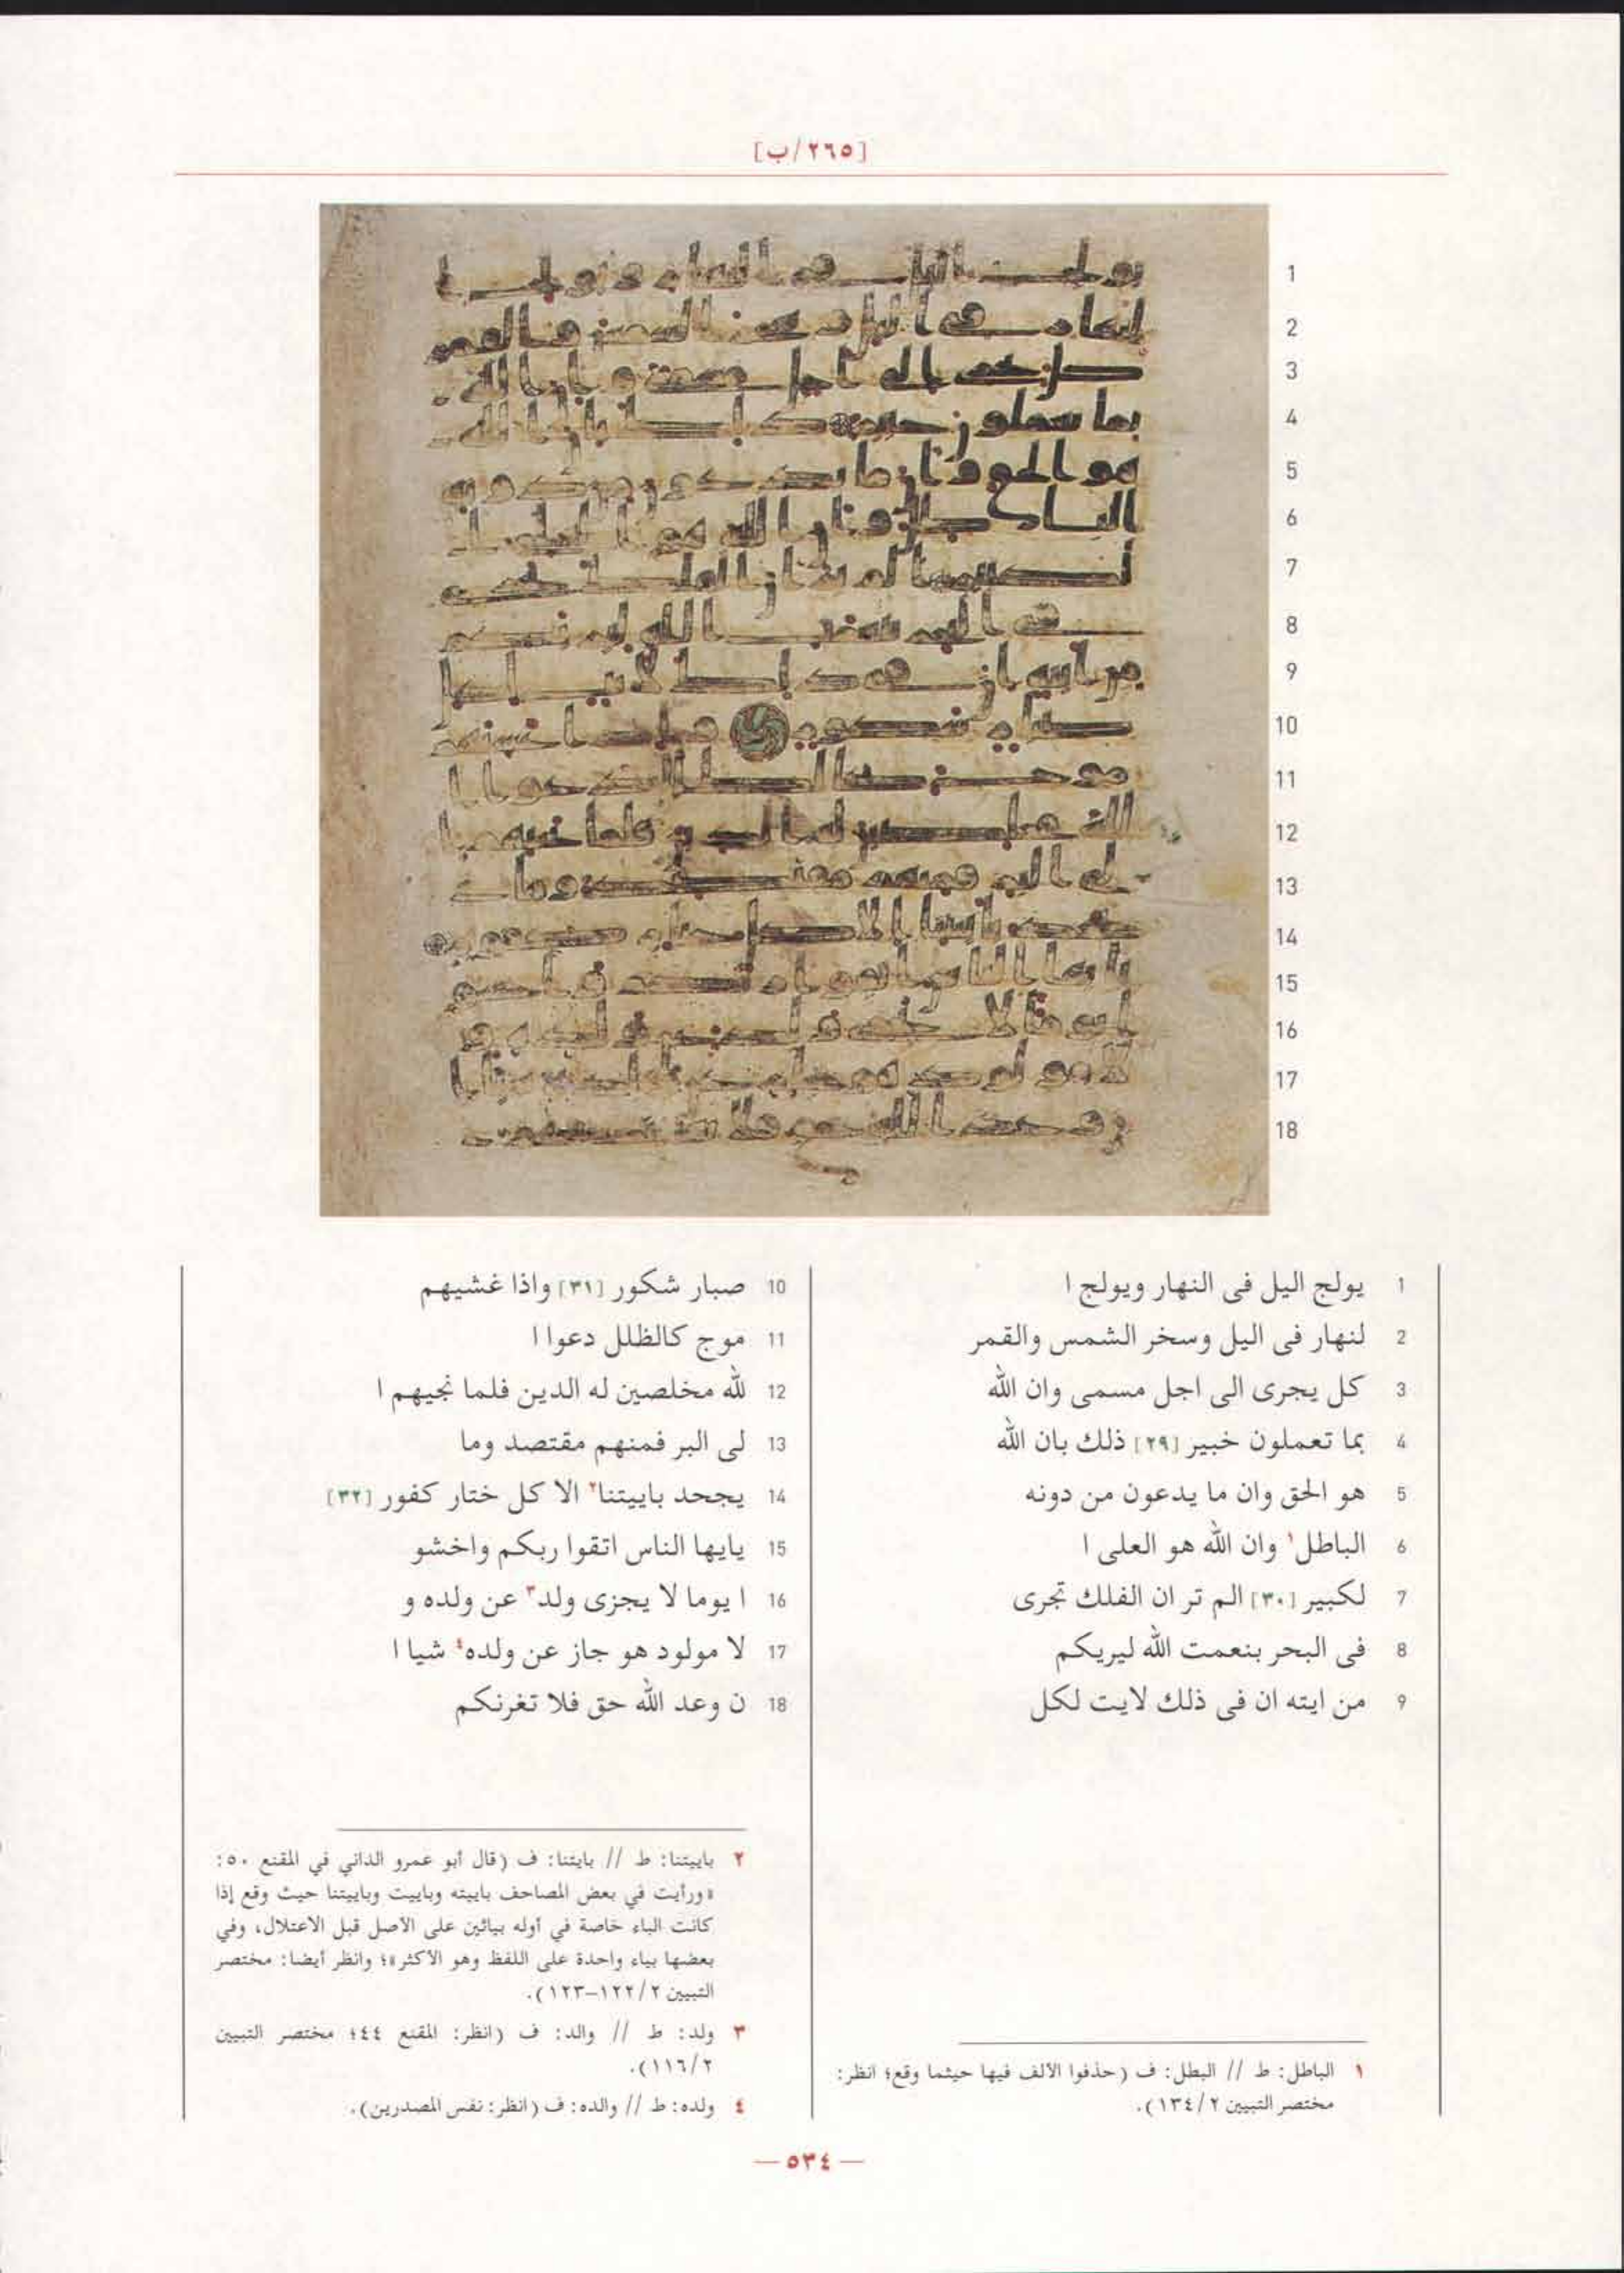 [٢٦٥/ب]
1 يولج اليل فى النهار ويولج ا
2 لنهار فى اليل وسخر الشمس والقمر
3 كل يجرى الى اجل مسمى وان الله
4 بما تعملون خبير [٢٩] ذلك بان الله
5 هو الحق وان ما يدعون من دونه
6 الباطل١ وان الله هو العلى ا
7 لكبير [٣٠] الم تر ان الفلك تجرى
8 فى البحر بنعمت الله ليريكم
9 من ايته ان فى ذلك لايت لكل
10 صبار شكور [٣١] واذا غشيهم
11 موج كالظلل دعوا ا
12 لله مخلصين له الدين فلما نجيهم ا
13 لى البر فمنهم مقتصد وما
14 يجحد باييتنا٢ الا كل ختار كفور [٣٢]
15 يايها الناس اتقوا ربكم واخشو
16 ا يوما لا يجزى ولد٣ عن ولده و
17 لا مولود هو جاز عن ولده٤ شيا ا
18 ن وعد الله حق فلا تغرنكم
١ الباطل: ط // البطل: ف (حذفوا الألف فيها حيثما وقع؛ انظر:
مختصر التبيين ٢/ ١٣٤).
٢ باييتنا: ط // بايتنا: ف (قال أبو عمرو الداني في المقنع ٥٠:
«ورأيت في بعض المصاحف باييته وباييت وباييتنا حيث وقع إذا
كانت الباء خاصة في أوله بيائين على الأصل قبل الاعتلال، وفي
بعضها بياء واحدة على اللفظ وهو الأكثر»؛ وانظر أيضا: مختصر
التبيين ٢/ ١٢٢–١٢٣).
٣ ولد: ط // والد: ف (انظر: المقنع ٤٤؛ مختصر التبيين
٢/ ١١٦).
٤ ولده: ط // والده: ف (انظر: نفس المصدرين).
— ٥٣٤ —